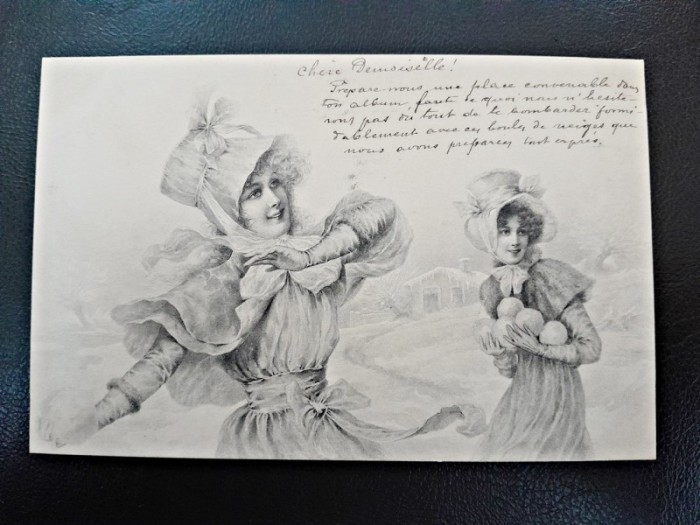 Chère Demoisélle!
Prépare-nous une place convenable dans
ton album, faute de quoi nous n'hésite-
rons pas du tout de te bombarder formi-
dablement avec ces boules de neiges que
nous avons préparées tout exprès.